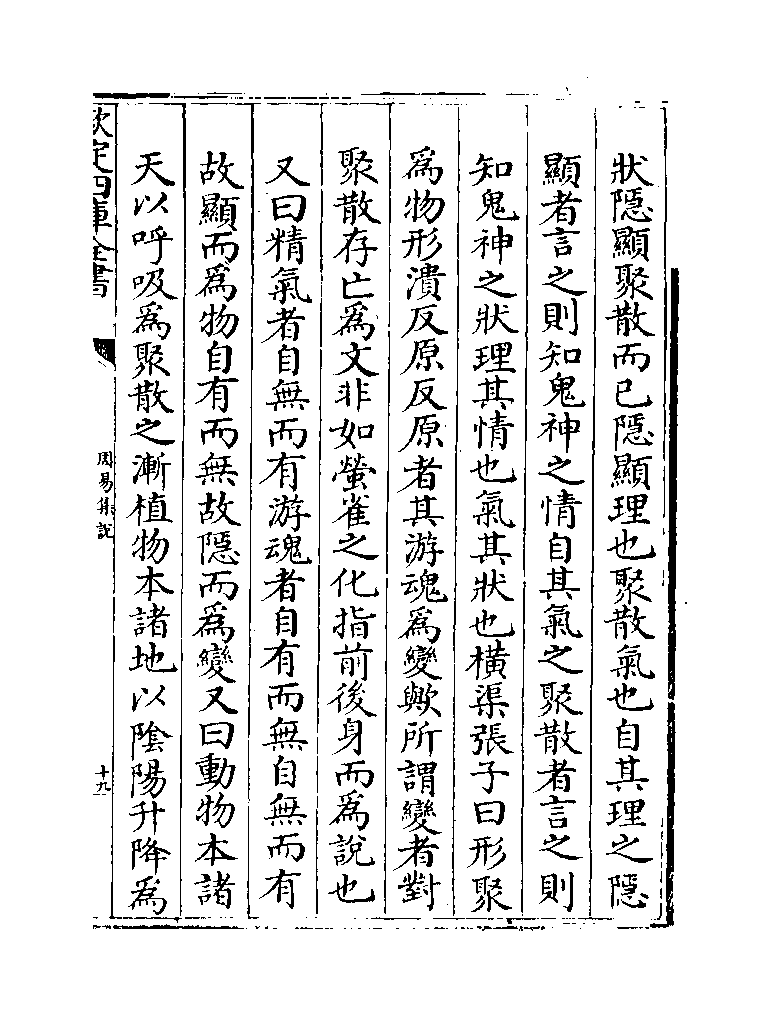 狀隱顯聚散而已隱顯理也聚散氣也自其理之隱
顯者言之則知鬼神之情自其氣之聚散者言之則
知鬼神之狀理其情也氣其狀也横渠張子曰形聚
爲物形潰反原反原者其游魂爲變歟所謂變者對
聚散存亡爲文非如螢雀之化指前後身而爲說也
又曰精氣者自無而有游魂者自有而無自無而有
故顯而爲物自有而無故隱而爲變又曰動物本諸
天以呼吸爲聚散之漸植物本諸地以隂陽升降爲
欽定四庫全書
周易集說
十九